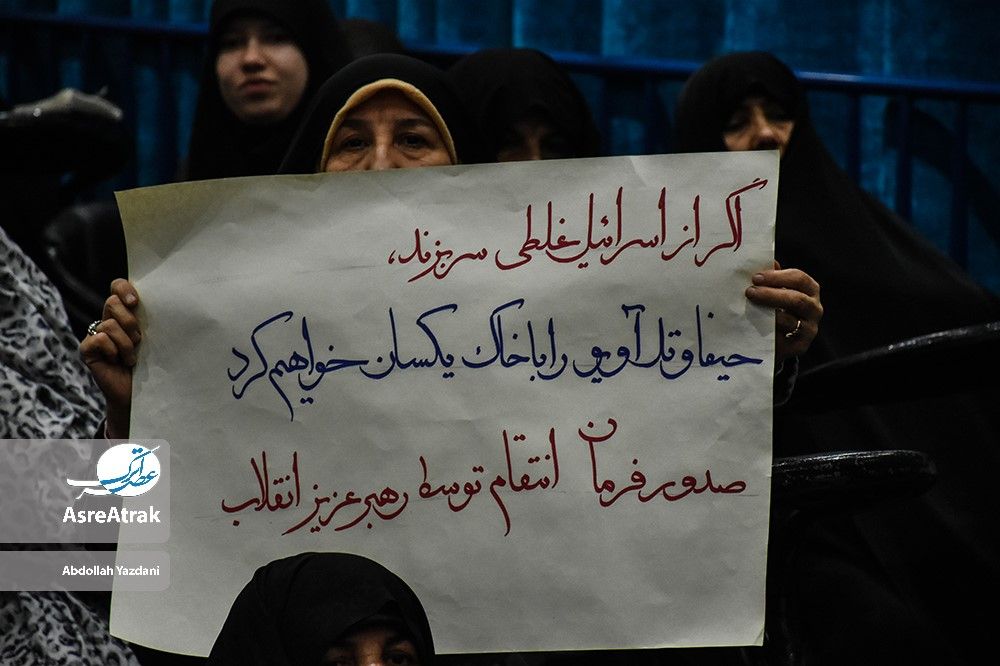 اگر از اسرائیل غلطی سر بزند،
حیفا و تل آویو را با خاک یکسان خواهیم کرد
صدور فرمان انتقام توسط رهبر عزیز انقلاب
عصر اترک
AsreAtrak
Abdollah Yazdani